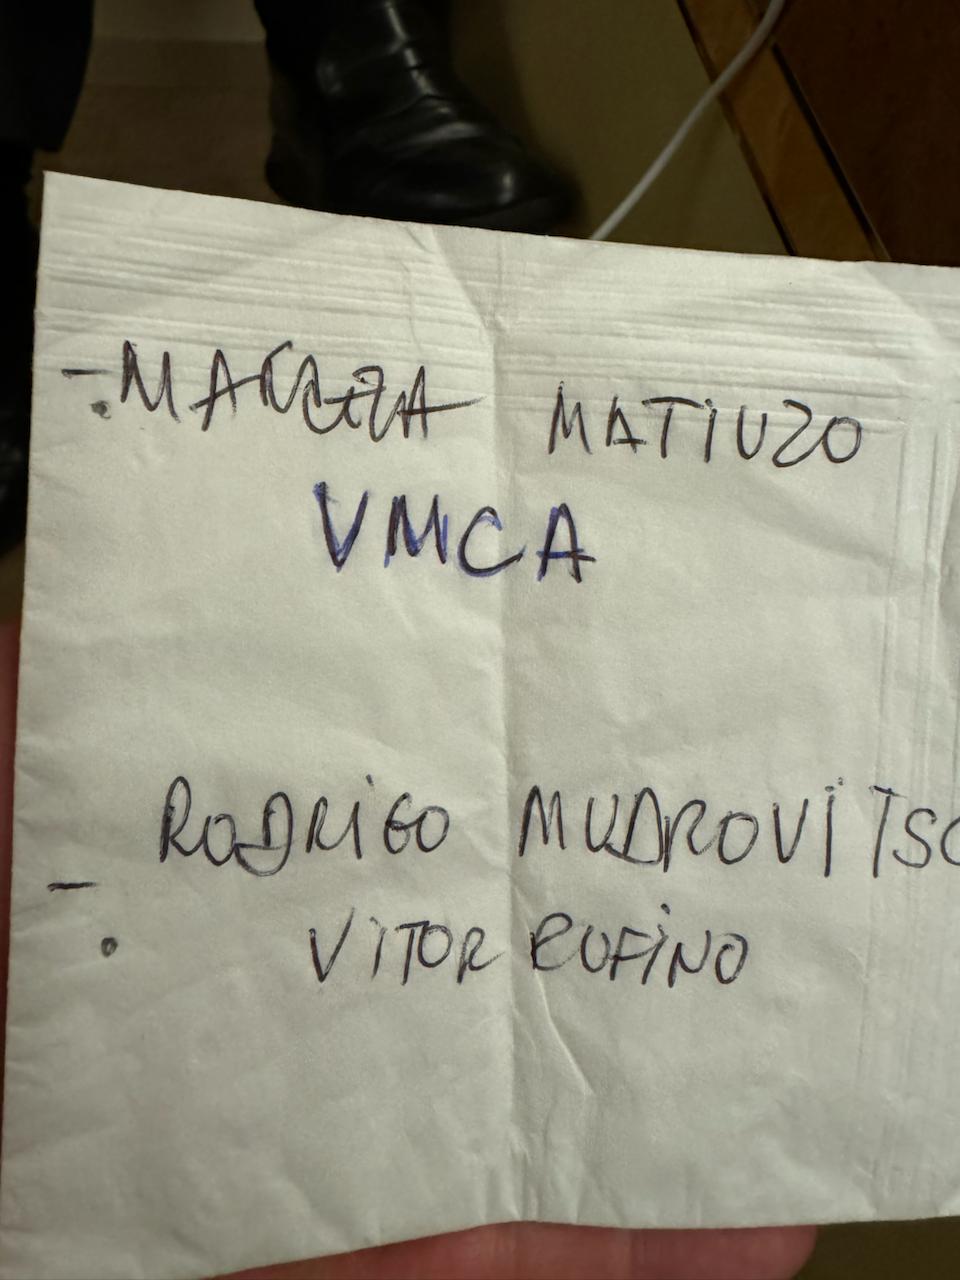 - MATIUZO
VMCA
RODRIGO MUDROVITSC
- VITOR RUFINO